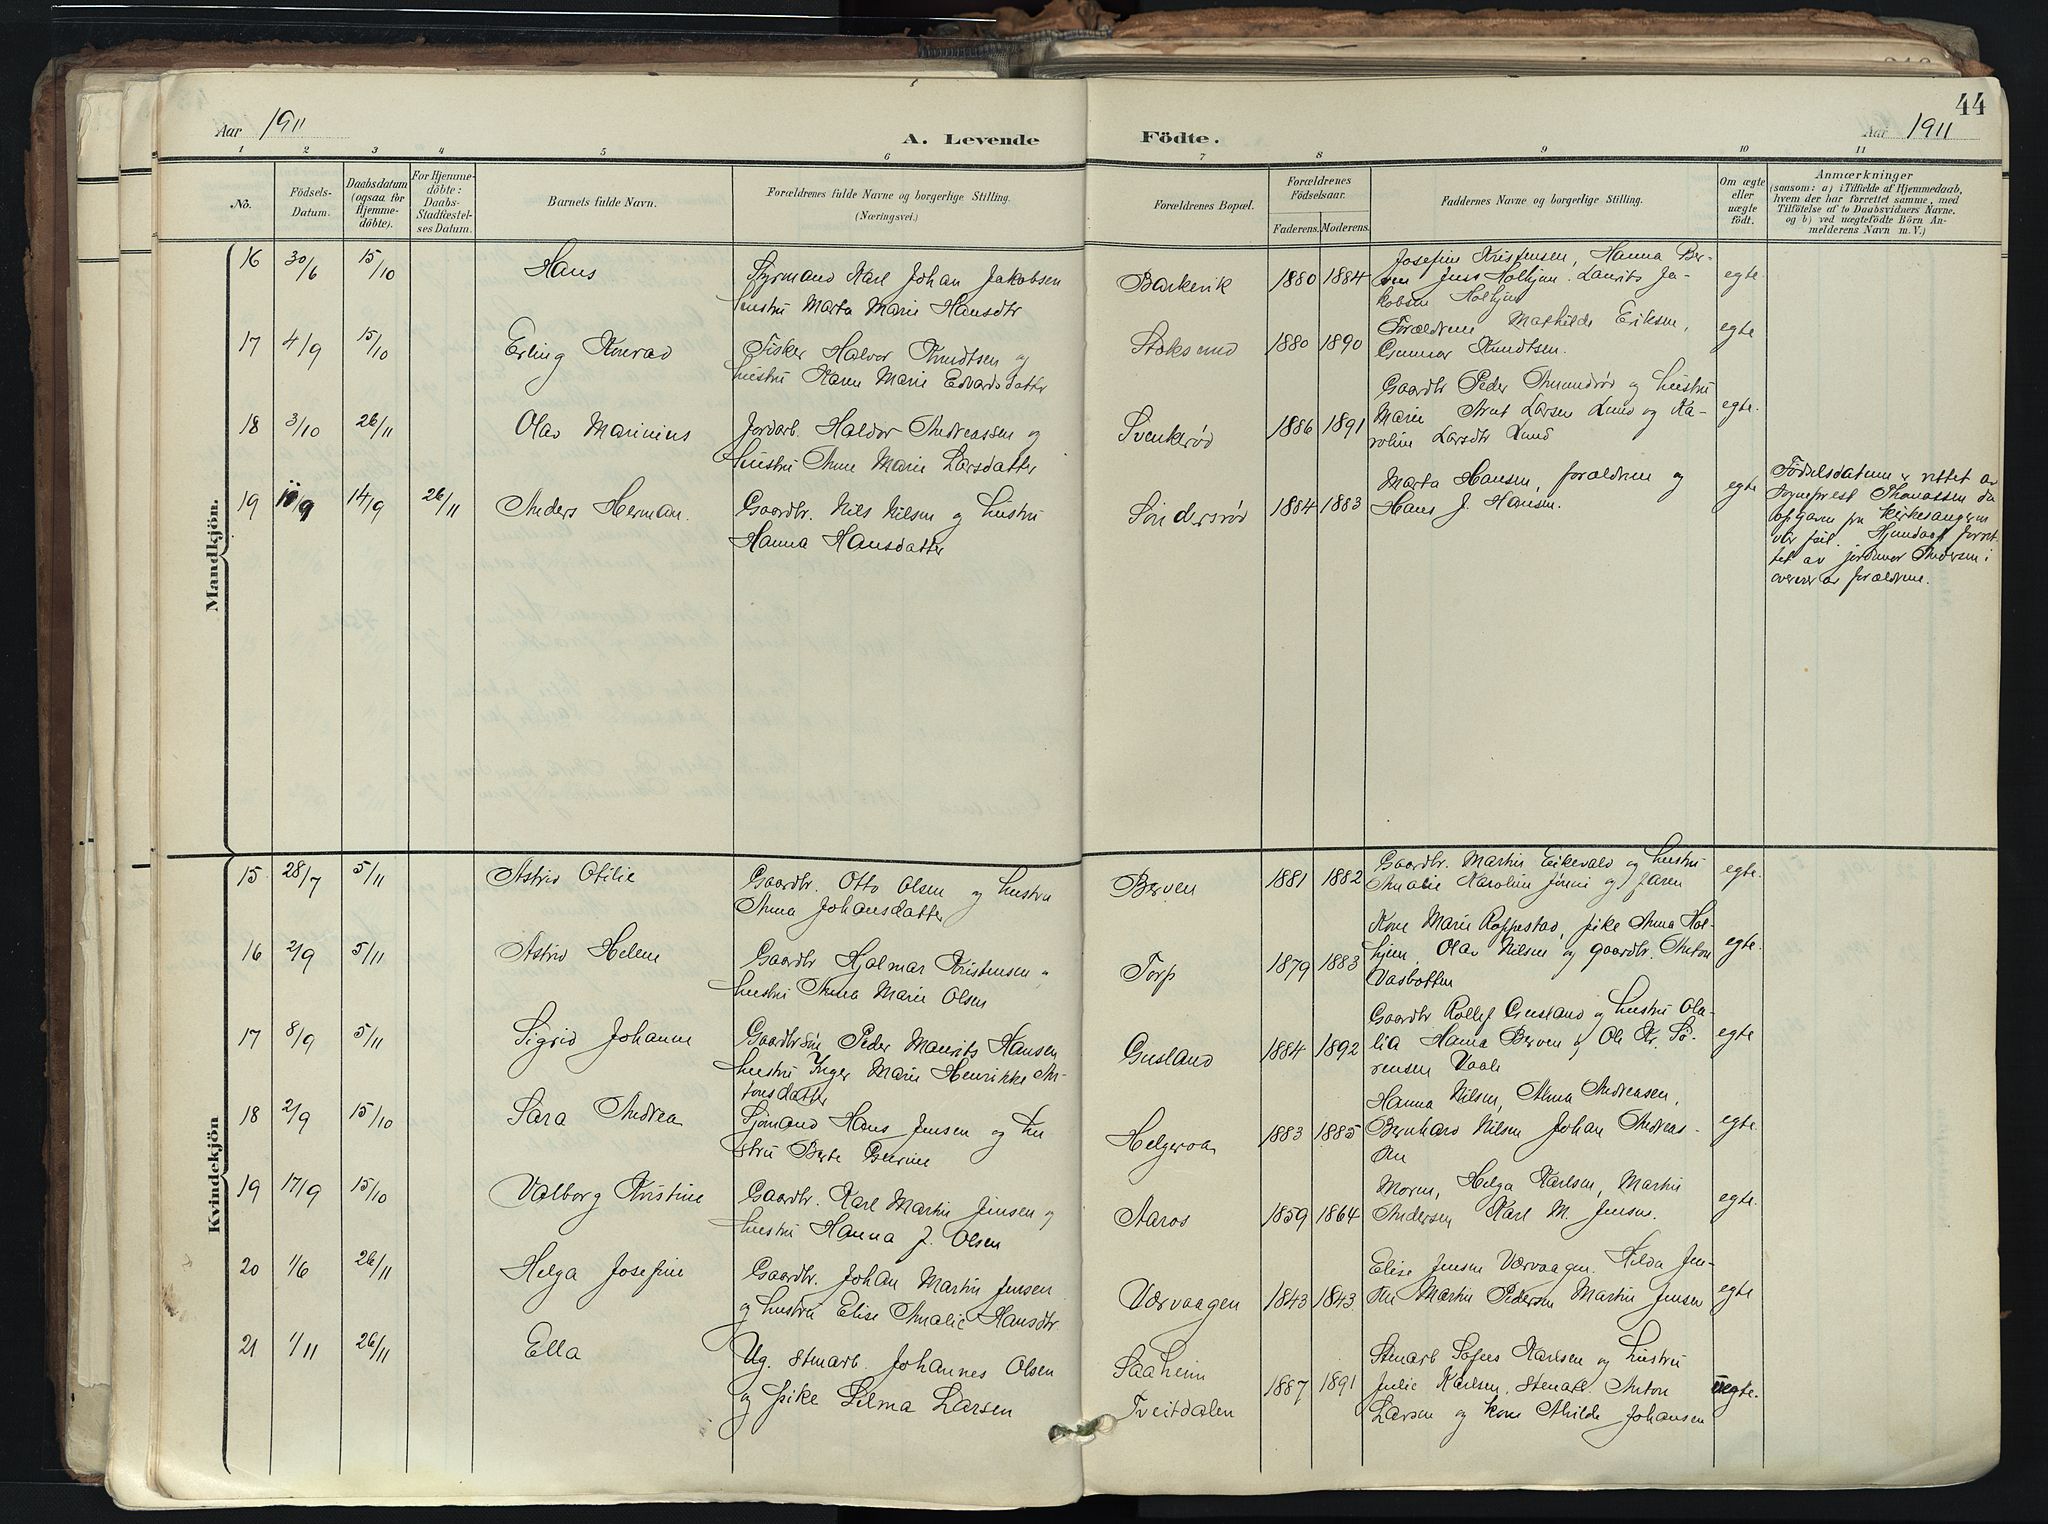 44
Aar 1911
A. Levende Födte.
Aar 1911
1 2 3 4 5 6 7 8 9 10 11
No.
Födsels-
Datum.
Daabsdatum
(ogsaa for
Hjemme-
döbte).
For Hjemme-
döbte:
Daabs-
Stadfæstel-
ses Datum.
Barnets fulde Navn.
Forældrenes fulde Navne og borgerlige Stilling.
(Næringsvei.)
Forældrenes Bopæl.
Forældrenes
Födselsaar.
Faderens. Moderens.
Faddernes Navne og borgerlige Stilling.
Om ægte
eller
uægte
födt.
Anmærkninger
(saasom: a) i Tilfælde af Hjemmedaab,
hvem der har forrettet samme, med
Tilföielse af to Daabsvidners Navne.
og b) ved uægtefödte Börn An-
melderens Navn m. V.)
Mandkjön.
16 30/6 15/10 Hans
Styrmand Karl Johan Jakobsen
hustru Marta Marie Hansdtr
Barkevik 1880 1884
Josefine Kristensen, Hanna Ber-
ven Jens Holhjem. Laurits Ja-
kobsen Holhjem
egte
17 4/9 15/10 Erling Konrad
Fisker Halvor Knudtsen og
hustru Karen Marie Edvardsdatter
Stoksund 1880 1890
Forældrene Mathilde Eriksen,
Gunnar Knudtsen.
egte
18 3/10 26/11 Olav Marinius
Jordarb. Haldor Andreassen og
hustru Anne Marie Larsdatter
Svenkerød 1886 1891
Gaardbr Peder Amundrød og hustru
Marie Arnt Larsen Lund og Ka-
roline Larsdtr Lund
egte.
19 10/9 14/9 26/11 Anders Herman.
Gaardbr. Nils Nilsen og hustru
Hanna Hansdatter
Søndersrød 1884 1883
Marta Hansen, forældrene og
Hans J. Hansen.
egte
Fødselsdatum er rettet av
sogneprest Thomassen da
opgaven fra kirkesangeren
var feil. Hjemdaab forret-
tet av jordmor Andersen i
overvær av forældrene.
Kvindekjön
15 28/7 5/11 Astrid Otilie
Gaardbr. Otto Olsen og hustru
Anna Johansdatter
Berven 1881 1882
Gaardbr. Martin Eikevald og hustru
Amalie Karoline og faren
egte.
16 2/9 5/11 Astrid Helene
Gaardbr Hjalmar Kristensen og
hustru Anna Marie Olsen
Torp 1879 1883
Kone Marie Roppestad, pike Anna Hol-
hjem, Olav Nilsen og gaardbr. Anton
Vasbotten
egte.
17 8/9 5/11 Sigrid Johanne
Gaardbrsøn Peder Maurits Hansen
hustru Inger Marie Henrikke An-
tonsdatter
Gusland 1884 1892
Gaardbr Rollef Gusland og hustru Ola-
lia Hanna Berven og Ole Kr. Sø-
rensen Vaale
egte
18 2/9 15/10 Sara Andrea
Sjømand Hans Jensen og hu
stru Berte Gurine
Helgeroa 1883 1885
Hanna Nilsen, Anna Andreasen,
Bernhard Nilsen Johan Andreas-
sen
egte.
19 17/9 15/10 Valborg Kristine
Gaardbr. Karl Martin Jensen og
hustru Hanna J. Olsen
Aaros 1859 1864
Moren, Helga Karlsen, Martin
Andersen Karl M. Jensen.
egte.
20 1/6 26/11 Helga Josefine
Gaardbr. Johan Martin Jensen
og hustru Elise Amalie Hansdtr.
Værvaagen 1843 1843
Elise Jensen Værvaagen. Hilda Jen-
sen Martin Pedersen Martin Jensen
egte
21 1/11 26/11 Ella
Ug. stenarb. Johannes Olsen
og pike Selma Larsen
Saaheim
Tveitdalen
1887 1891
Stenarb Sofus Karlsen og hustru
Julie Karlsen, stenarb. Anton
Larsen og kone Alhilde Johansen
uegte.